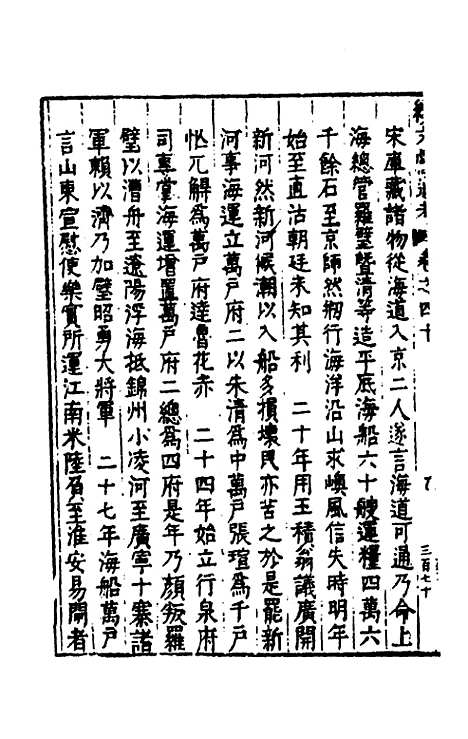 續文獻通考 卷之四十 三百七十
宋庫藏諸物從海道入京二人遂言海道可通乃命上
海總管羅璧暨清等造平底海船六十艘運糧四萬六
千餘石至京師然刱行海洋沿山求嶼風信失時明年
始至直沽朝廷未知其利 二十年用王積翁議廣開
新河然新河候潮以入船多損壞民亦苦之於是罷新
河事海運立萬戶府二以朱清爲中萬戶張瑄爲千戶
忙兀觧爲萬戶府達魯花赤 二十四年始立行泉府
司專掌海運增置萬戶府二總爲四府是年乃顏叛羅
璧以漕舟至遼陽浮海抵錦州小凌河至廣寧十寨諸
軍賴以濟乃加璧昭勇大將軍 二十七年海船萬戶
言山東宣慰使樂實所運江南米陸負至淮安易閘者